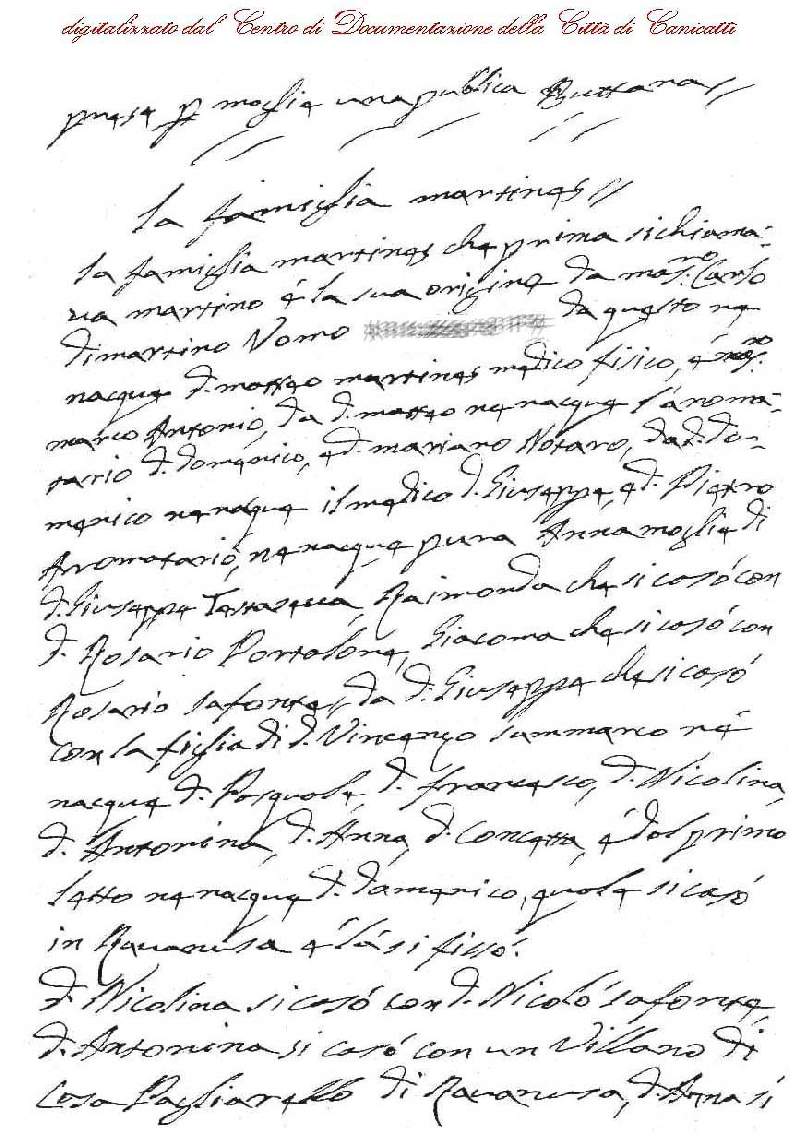 digitalizzato dal Centro di Documentazione della Città di Canicattì
prese p moglie una publica Buttana//
la famiglia martines//
la famiglia martines che prima si chiama-
va martino é la sua origine da mas.ro Carlo
dimartino Uomo da questo ne
nacque d. matteo martines medico fisico, é mas.ro
marco Antonio, da d. matteo ne nacque l'aroma-
tario d. domenico, e d. mariano Notaro, da d. do-
menico ne nacque il medico d. Giuseppe, e d. Pietro
Arromatario, ne nacque pure Anna moglie di
d. Giuseppe Testasecca, Raimonda che si casó con
d. Rosario Portalone, Giacoma che si casó con
Rosario Safonte, da d. Giuseppe che si casó
con la figlia di d. Vincenzo Sammarco né
nacque d. Pasquale, d. francesco, d. Nicolina,
d. Antonina, d. Anna, d. Concetta, é dal primo
letto ne nacque d. domenico, quale si casó
in Ravanusa e lá si fissó.
d. Nicolina si casó con d. Nicoló Safonte,
d. Antonina si casó con un Villano di
Casa Pagliarello di Ravanusa, d. Anna si